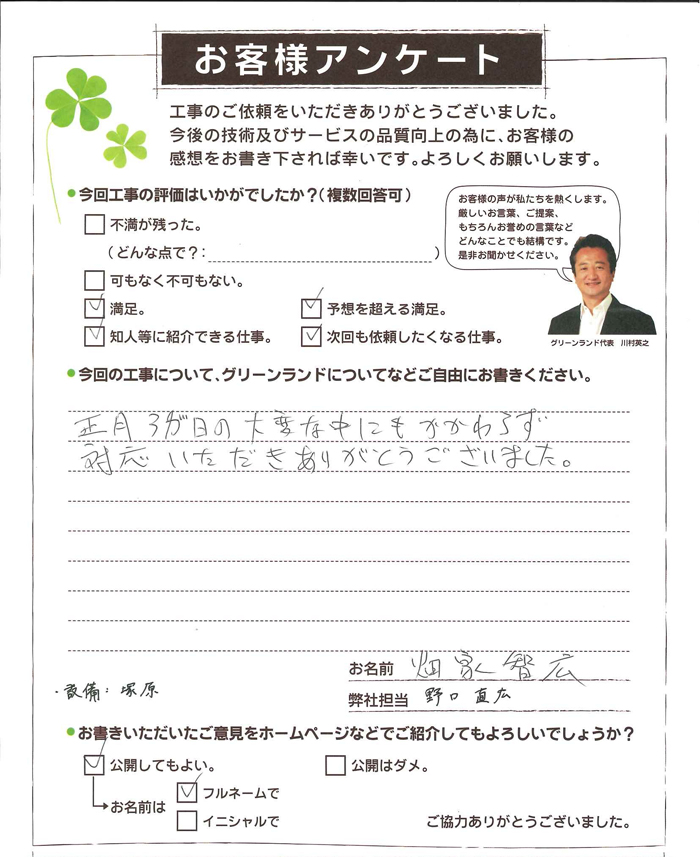 お客様アンケート
工事のご依頼をいただきありがとうございました。
今後の技術及びサービスの品質向上の為に、お客様の
感想をお書き下されば幸いです。よろしくお願いします。
今回工事の評価はいかがでしたか?(複数回答可)
不満が残った。
(どんな点で?: )
可もなく不可もない。
満足。 予想を超える満足。
知人等に紹介できる仕事。 次回も依頼したくなる仕事。
お客様の声が私たちを熱くします。
厳しいお言葉、ご提案、
もちろんお誉めの言葉など
どんなことでも結構です。
是非お聞かせください。
グリーンランド代表 川村英之
今回の工事について、グリーンランドについてなどご自由にお書きください。
正月3が日の大変な中にもかかわらず
対応いただきありがとうございました。
お名前 畑家智広
・設備:塚原
弊社担当 野口直広
お書きいただいたご意見をホームページなどでご紹介してもよろしいでしょうか?
公開してもよい。 公開はダメ。
お名前は フルネームで
イニシャルで
ご協力ありがとうございました。